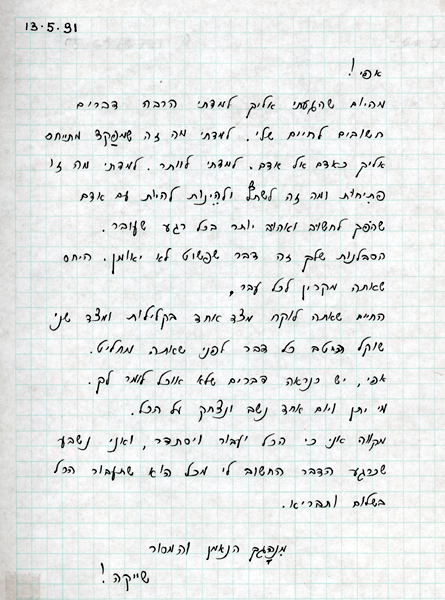 13.5.91
אפי!
מהיום שהגעתי אליך למדתי הרבה דברים
חשובים לחיים שלי. למדתי מה זה שמפקד מתייחס
אליך כאדם אל אדם. למדתי לוותר. למדתי מה זו
פתיחות ומה זה לשתף ולהינות להיות עם אדם
שהפך לחשוב ואהוב יותר בכל רגע שעובר.
הסבלנות שלך זה דבר שפשוט לא יאומן. היחס
שאתה מקרין לכל עבר,
החיים שאתה לוקח מצד אחד בקלילות ומצד שני
שוקל היטב כל דבר לפני שאתה מחליט.
אפי, יש כנראה דברים שלא אוכל לומר לך.
מי יתן ויום אחד נשב ונצחק על הכל.
מקווה אני כי הכל יעבור ויסתדר, ואני נשבע
שכרגע הדבר החשוב לי מכל הוא שתעבור הכל
בשלום ותבריא.
מנהגך הנאמן והמסור
שייקה!